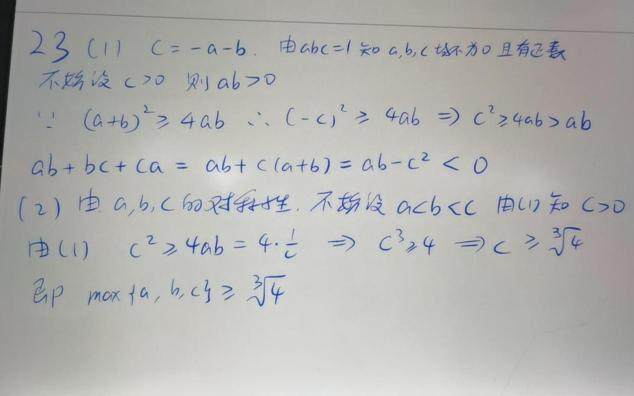 23 (1) c=-a-b. 由abc=1知 a,b,c均不为0且有正数
不妨设 c>0 则 ab>0
∵ (a+b)²≥4ab ∴ (-c)²≥4ab ⇒ c²≥4ab>ab
ab+bc+ca = ab+c(a+b) = ab-c² < 0
(2) 由a,b,c的对称性. 不妨设 a<b<c 由(1)知 c>0
由(1) c²≥4ab=4·1/c ⇒ c³≥4 ⇒ c≥∛4
即 max{a, b, c}≥∛4